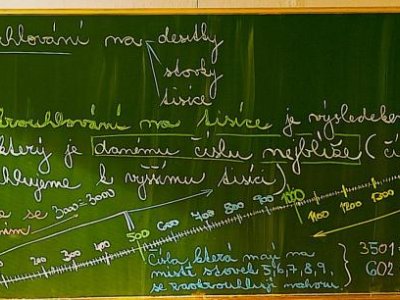 hlování na desítky
stovky
tisíce
krouhlování na tisíce je výsledkem
který je danému číslu nejblíže (čí
hlujeme k vyššímu tisíci)
a se 3000=3000
ním
200 300 400 500 600 700 800 900 1000 1100 1200 1300
Čísla, která mají na 3501
místě stovek 5,6,7,8,9, 602
se zaokrouhlují nahoru